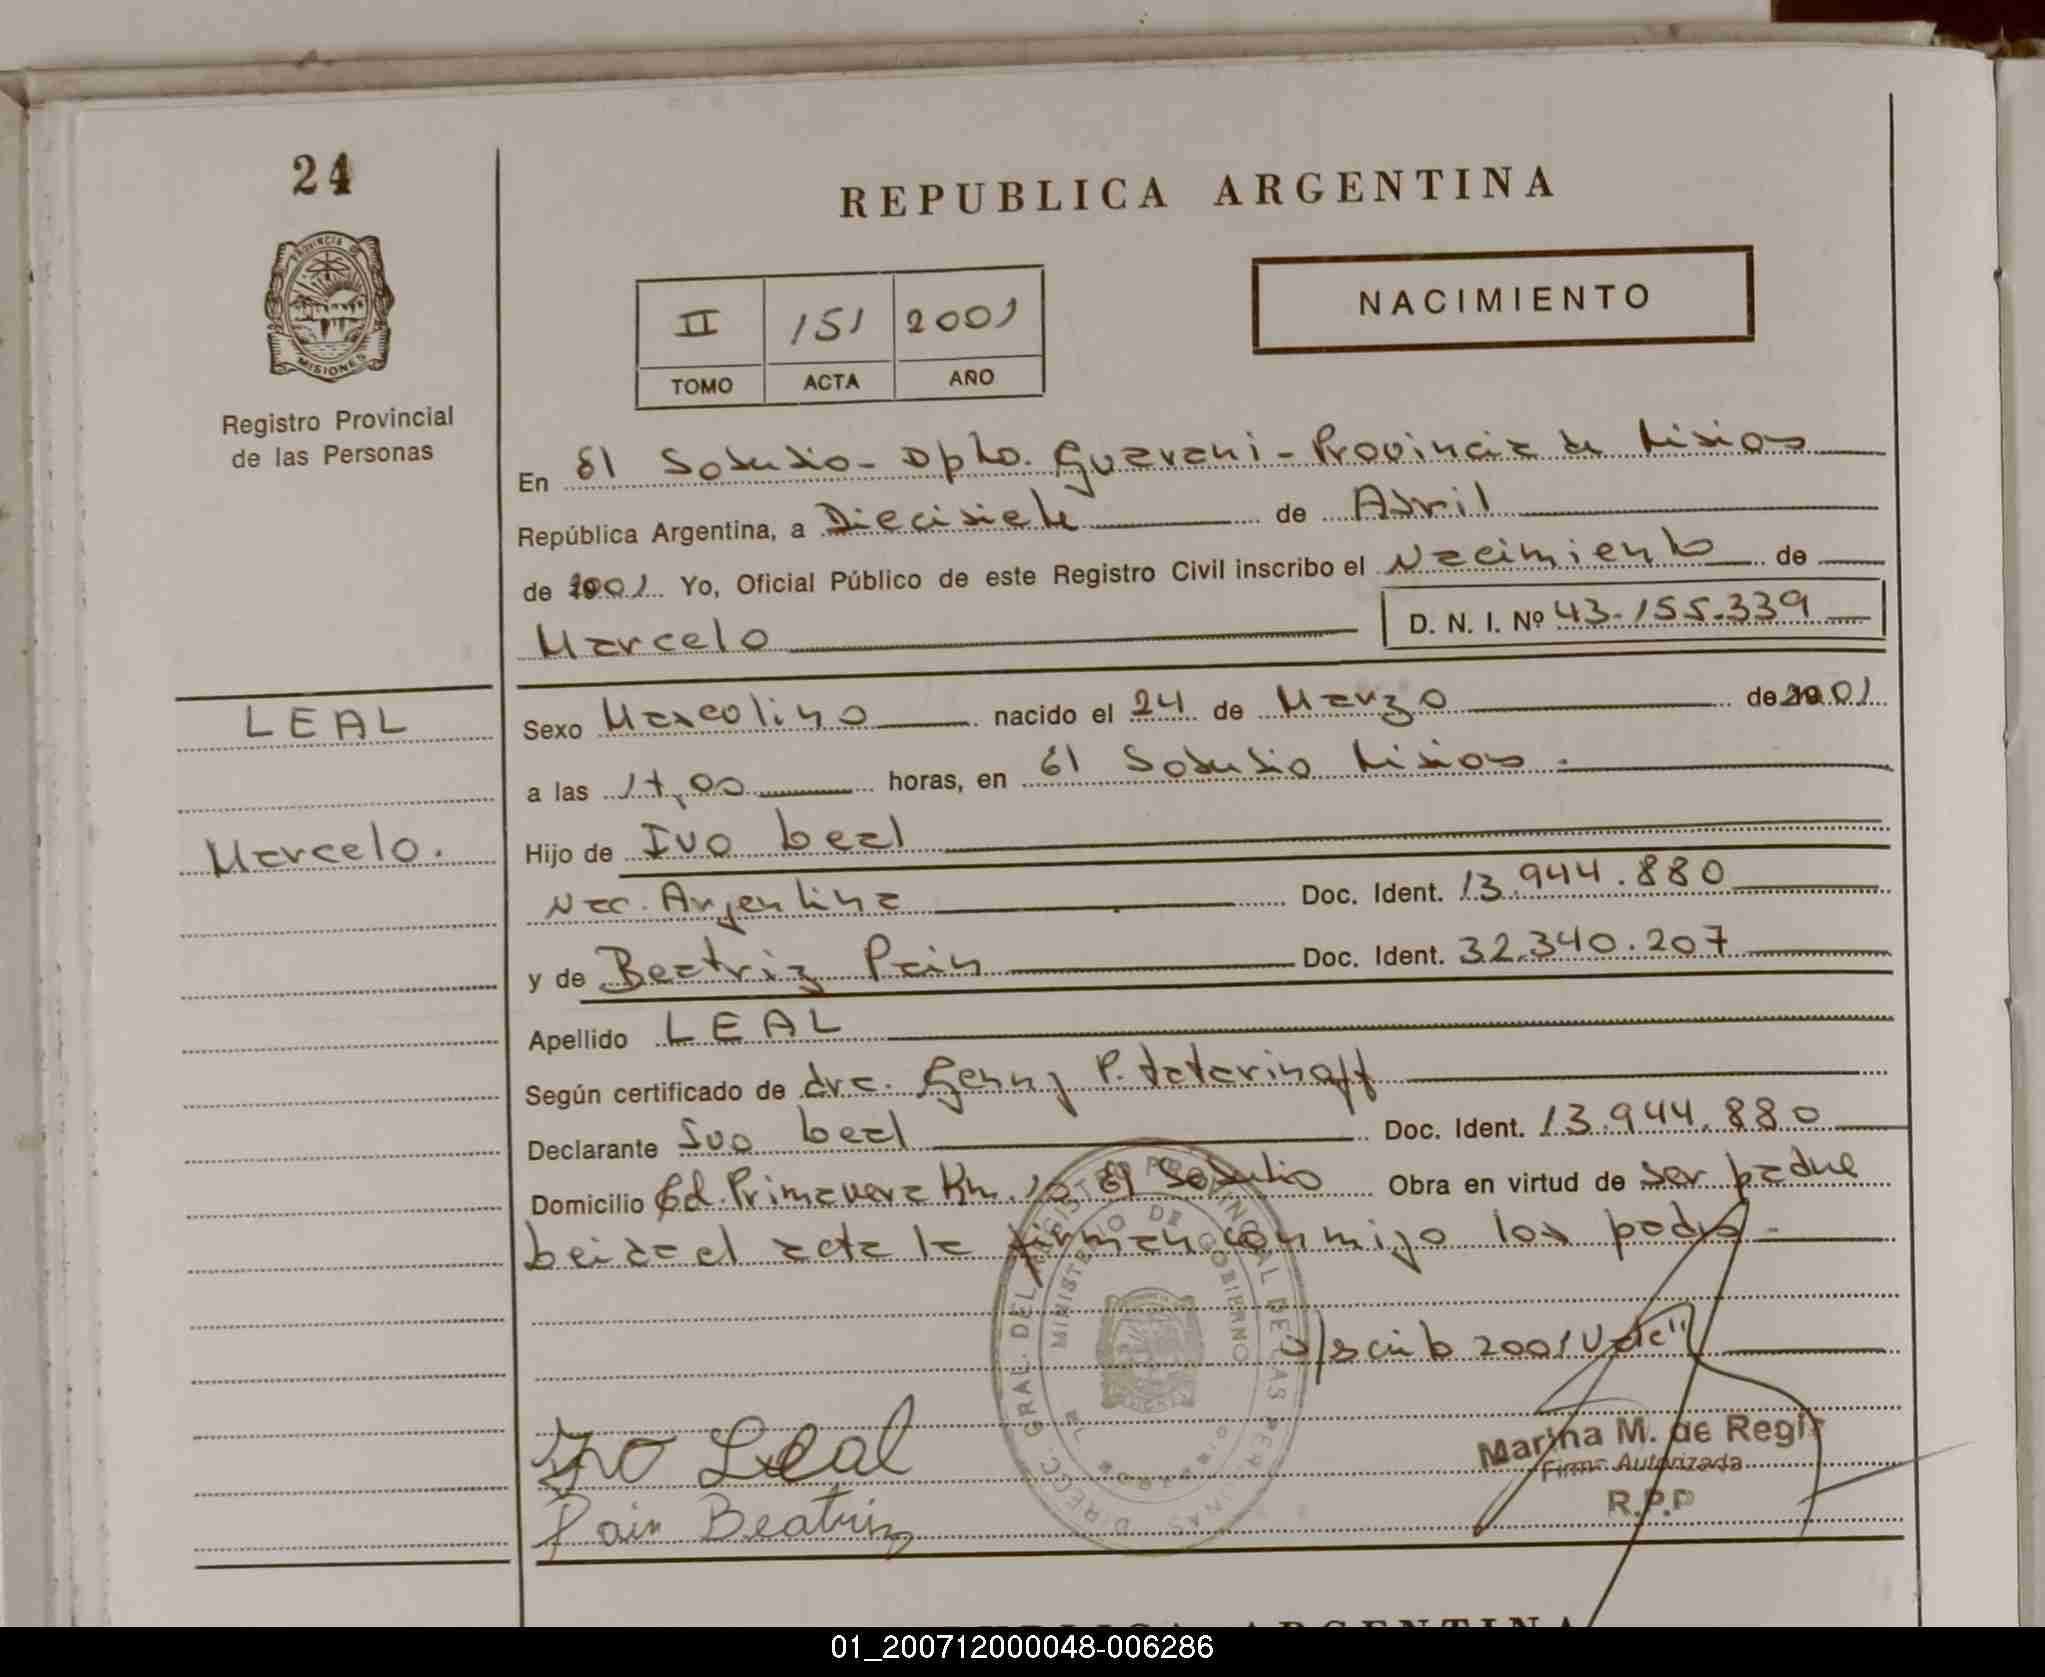 24
REPUBLICA ARGENTINA
PROVINCIA DE
MISIONES
Registro Provincial
de las Personas
II 151 2001
TOMO ACTA AÑO
NACIMIENTO
En El Soberbio - Dpto. Guarani - Provincia de Misiones
República Argentina, a Diecisiete de Abril
de 2001 Yo, Oficial Público de este Registro Civil inscribo el Nacimiento de
Marcelo D. N. I. Nº 43.155.339
LEAL
Marcelo.
Sexo Masculino nacido el 24 de Marzo de 2001
a las 17,00 horas, en El Soberbio Misiones.
Hijo de Ivo Leal
Nac. Argentina Doc. Ident. 13.944.880
y de Beatriz Pain Doc. Ident. 32.340.207
Apellido LEAL
Según certificado de dra. Genny P. Tatarinoff
Declarante Ivo Leal Doc. Ident. 13.944.880
Domicilio Col. Primavera Km. 10 El Soberbio Obra en virtud de ser padre
Leida el acta la firman conmigo los padres -
2001 Vale"
Ivo Leal
Pain Beatriz
DIRECC. GRAL. DEL REGISTRO PROVINCIAL DE LAS PERSONAS
MINISTERIO DE GOBIERNO
Marina M. de Regis
Firma Autorizada
R.P.P
REPUBLICA ARGENTINA
01_200712000048-006286